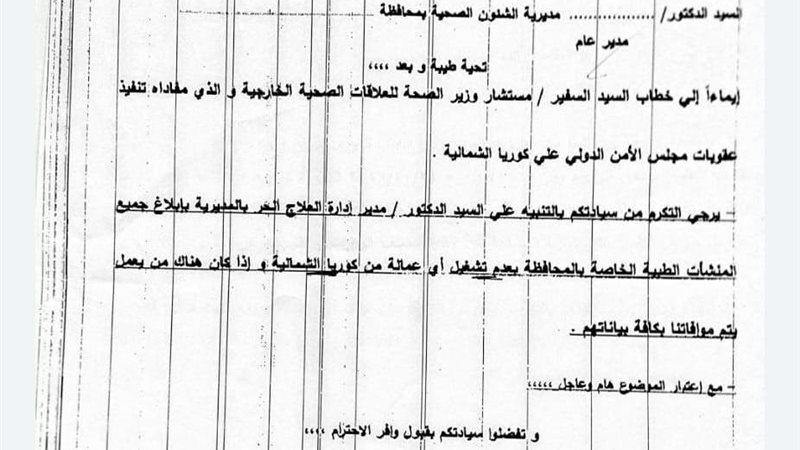 السيد الدكتور/ ................. مديرية الشئون الصحية بمحافظة
مدير عام
تحية طيبة و بعد ,,,,
إيماءاً إلي خطاب السيد السفير / مستشار وزير الصحة للعلاقات الصحية الخارجية و الذي مفاداه تنفيذ
عقوبات مجلس الأمن الدولي علي كوريا الشمالية .
– يرجي التكرم من سيادتكم بالتنبيه علي السيد الدكتور / مدير إدارة العلاج الحر بالمديرية بإبلاغ جميع
المنشآت الطبية الخاصة بالمحافظة بعدم تشغيل أي عمالة من كوريا الشمالية و إذا كان هناك من يعمل
يتم موافاتنا بكافة بياناتهم .
– مع إعتبار الموضوع هام وعاجل ,,,,,
و تفضلوا سيادتكم بقبول وافر الاحترام ,,,,